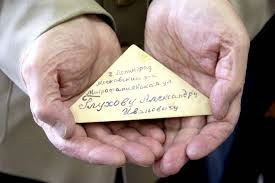 г Ленинград
Московский р-н
Митрофаньевская ул
Глухову Александру
Ивановичу